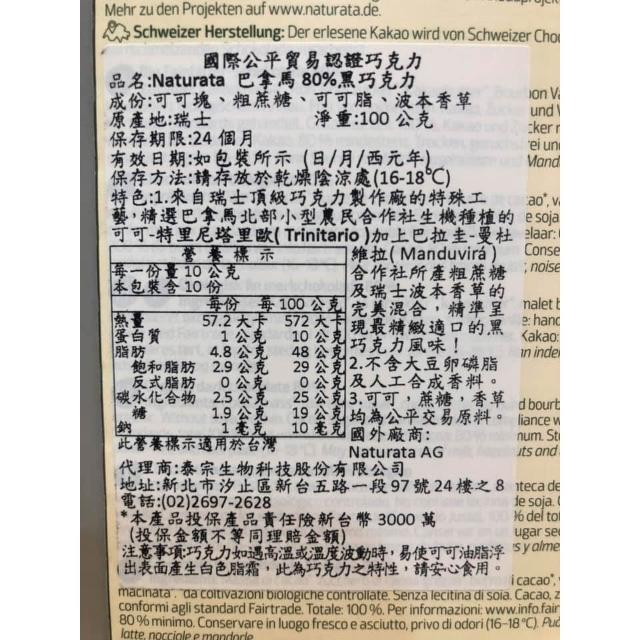 Mehr zu den Projekten auf www.naturata.de.
Schweizer Herstellung: Der erlesene Kakao wird von Schweizer Choc
國際公平貿易認證巧克力
品名:Naturata 巴拿馬 80%黑巧克力
成份:可可塊、粗蔗糖、可可脂、波本香草
原產地:瑞士 淨重:100 公克
保存期限:24 個月
有效日期:如包裝所示 (日/月/西元年)
保存方法:請存放於乾燥陰涼處(16-18℃)
特色:1.來自瑞士頂級巧克力製作廠的特殊工
藝,精選巴拿馬北部小型農民合作社生機種植的
可可-特里尼塔里歐( Trinitario )加上巴拉圭-曼杜
維拉( Manduvirá )
合作社所產粗蔗糖
及瑞士波本香草的
完美混合,精準呈
現最精緻適口的黑
巧克力風味!
2.不含大豆卵磷脂
及人工合成香料。
3.可可,蔗糖,香草
均為公平交易原料。
國外廠商:
Naturata AG
營養標示
每一份量 10 公克
本包裝含 10 份
每份 每 100 公克
熱量 57.2 大卡 572 大卡
蛋白質 1 公克 10 公克
脂肪 4.8 公克 48 公克
飽和脂肪 2.9 公克 29 公克
反式脂肪 0 公克 0 公克
碳水化合物 2.5 公克 25 公克
糖 1.9 公克 19 公克
鈉 1 毫克 10 毫克
此營養標示適用於台灣
代理商:泰宗生物科技股份有限公司
地址:新北市汐止區新台五路一段 97 號 24 樓之 8
電話:(02)2697-2628
*本產品投保產品責任險新台幣 3000 萬
(投保金額不等同理賠金額)
注意事項:巧克力如遇高溫或溫度波動時,易使可可油脂浮
出表面產生白色脂霜,此為巧克力之特性,請安心食用。
macinata*. *da coltivazioni biologiche controllate. Senza lecitina di soia. Cacao, z
conformi agli standard Fairtrade. Totale: 100 %. Per informazioni: www.info.fair
80 % minimo. Conservare in luogo fresco e asciutto, privo di odori (16–18°C). Può
latte, nocciole e mandorle.